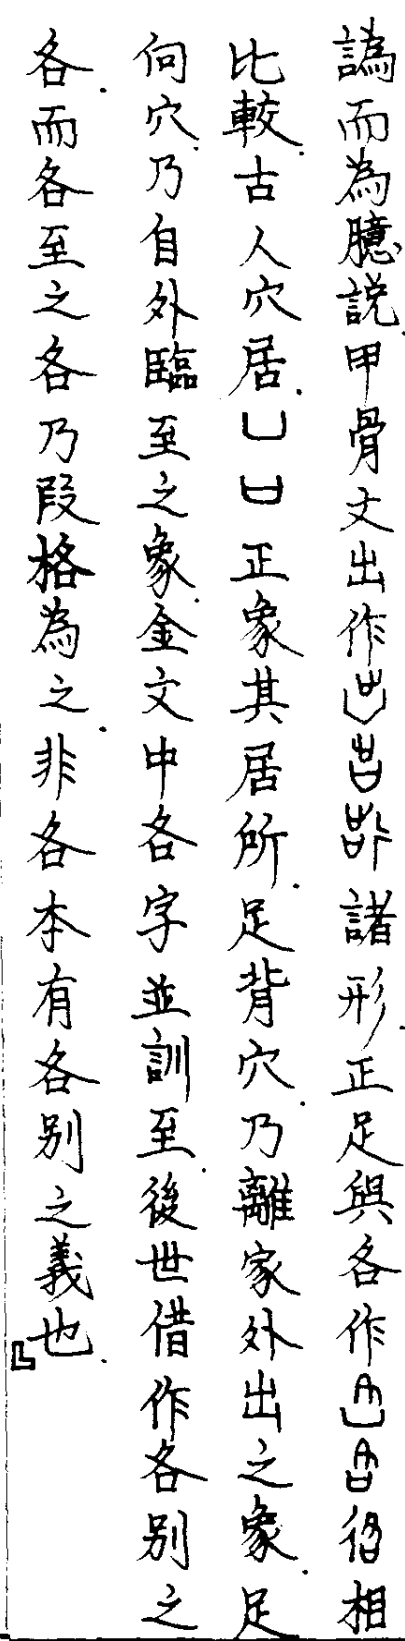 譌而為臆説甲骨文出作諸形.正足與各作相
比較.古人穴居.凵口正象其居所.足背穴.乃離家外出之象.足
向穴.乃自外臨至之象.金文中各字並訓至.後世借作各別之
各.而各至之各乃叚格為之.非各本有各別之義也.」